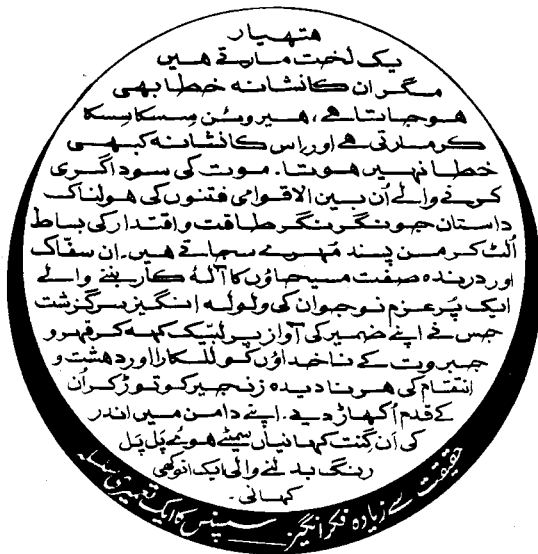 ہتھیار
یک لخت مارتے ہیں
مگر ان کا نشانہ خطا بھی
ہو جاتا ہے، ہیروئن سِسکا سِسکا
کر مارتی ہے اور اِس کا نشانہ کبھی
خطا نہیں ہوتا۔ موت کی سوداگری
کرنے والے اُن بین الاقوامی فتنوں کی ہولناک
داستان جو نگر نگر طاقت و اقتدار کی بساط
اُلٹ کر من پسند مُہرے سجاتے ہیں۔ ان سفّاک
اور درندہ صفت مسیحاؤں کا آلۂ کار بننے والے
ایک پُرعزم نوجوان کی ولولہ انگیز سرگزشت
جس نے اپنے ضمیر کی آواز پر لبّیک کہہ کر قہر و
جبروت کے ناخداؤں کو للکارا اور دہشت و
انتقام کی ہر نادیدہ زنجیر کو توڑ کر اُن
کے قدم اُکھاڑ دیے۔ اپنے دامن میں اندر
کی اَن گِنت کہانیاں سمیٹے ہوئے پَل پَل
رنگ بدلنے والی ایک انوکھی
کہانی۔
حقیقت سے زیادہ فکر انگیز ــــ سسپنس کا ایک تعمیری سلسلہ